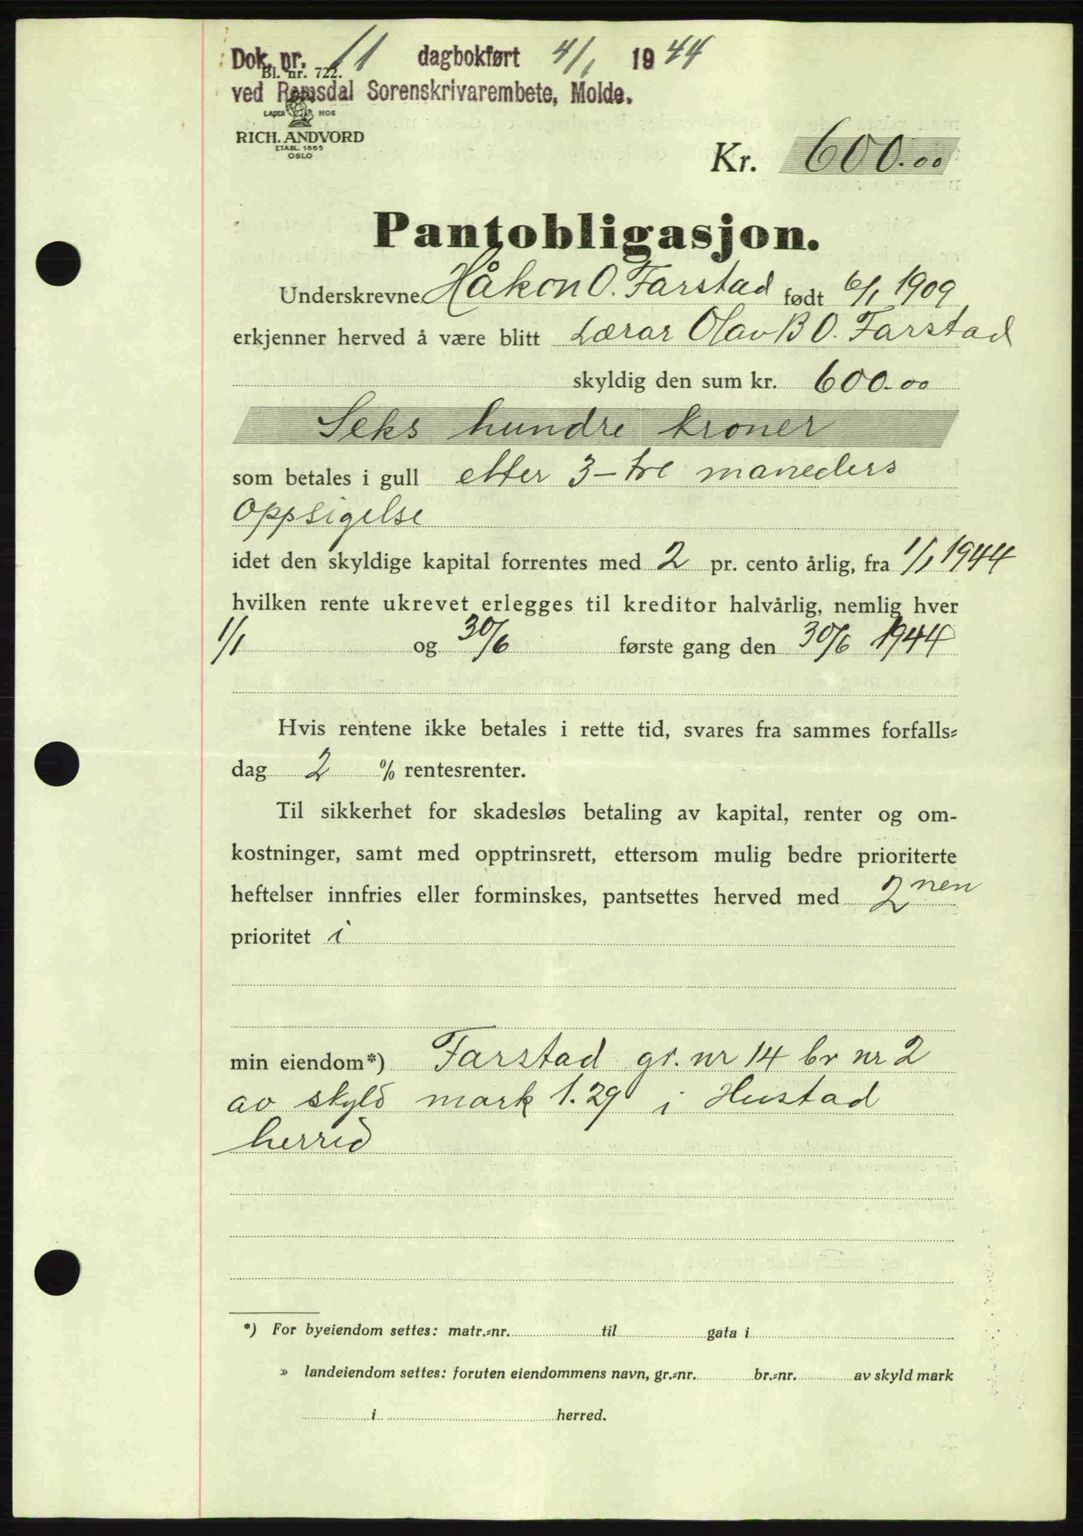 Dok. nr. 11 dagbokført 4/1 1944
Bl. nr. 722.
ved Romsdal Sorenskrivarembete, Molde.
LAGER HOS
RICH. ANDVORD
ETABL. 1865
OSLO
Kr. 600.00
Pantobligasjon.
Underskrevne Håkon O. Farstad født 6/1 1909
erkjenner herved å være blitt Lærar Olav B O. Farstad
skyldig den sum kr. 600.00
Seks hundre kroner
som betales i gull etter 3 – tre maneders
oppsigelse
idet den skyldige kapital forrentes med 2 pr. cento årlig, fra 1/1 1944
hvilken rente ukrevet erlegges til kreditor halvårlig, nemlig hver
1/1 og 30/6 første gang den 30/6 1944
Hvis rentene ikke betales i rette tid, svares fra sammes forfalls-
dag 2 % rentesrenter.
Til sikkerhet for skadesløs betaling av kapital, renter og om-
kostninger, samt med opptrinsrett, ettersom mulig bedre prioriterte
heftelser innfries eller forminskes, pantsettes herved med 2nen
prioritet i
min eiendom*) Farstad gr. nr 14 br nr 2
av skyld mark 1.29 i Hustad
herred
*) For byeiendom settes: matr.-nr. til gata i
» landeiendom settes: foruten eiendommens navn, gr.-nr. br.-nr. av skyld mark
i herred.